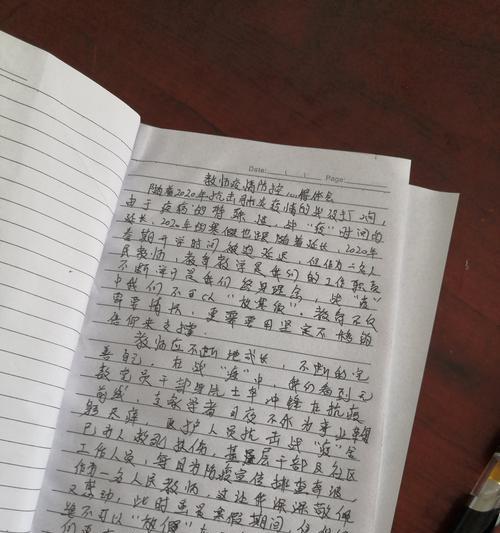 Date: Page:
教师疫情防控 心得体会
随着2020年抗击肺炎疫情的
由于疫病的特殊性,战“疫”时间的
延长,2020年的寒假也跟随着延长,2020年
春期开学时间被迫延迟,但作为一名人
民教师,教书教学是我们的工作职责
不断学习是我们终身理念,战“疫”
中我们不可以“放寒假”。教育不仅
需要情怀,更需要用坚定不移的
信仰来支撑。
教师应不断地成长,不断的完
善自己,在战“疫”中,我们看到无
数党员干部身先士卒冲锋在抗疫
前线,支教学者日夜不休为事业鞠
躬尽瘁,医护人员抗击战“疫”舍
已为人救死扶伤,基层干部及社区
工作人员,每日为防疫宣传排查奔波
作为一名人民教师,这让我深深敬佩
又感动,此时虽是寒假期间,但
是不可以“放假”